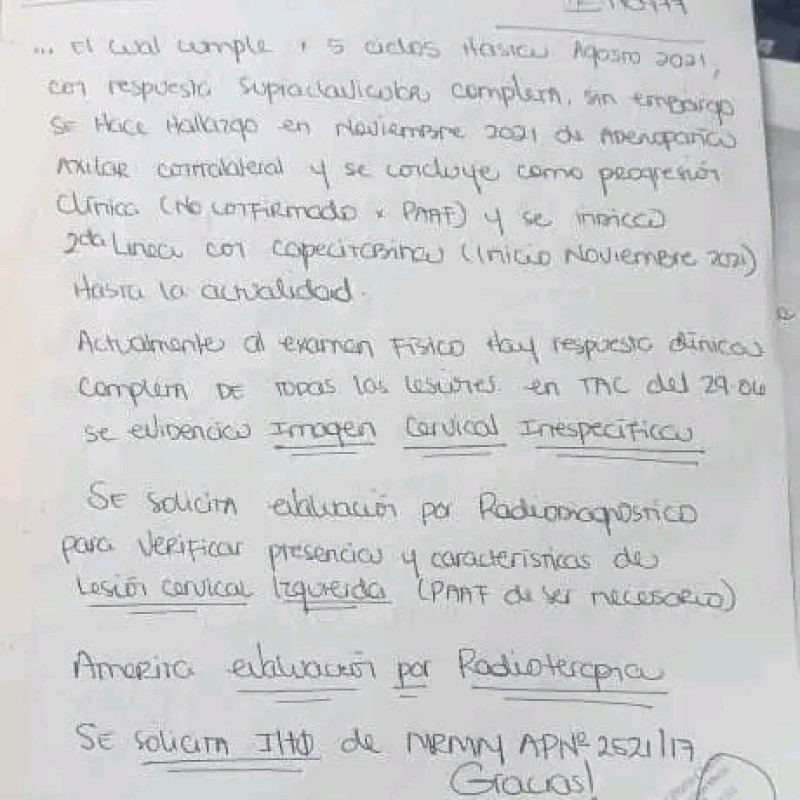 ... El cual cumple x 5 ciclos Hasta Agosto 2021,
con respuesta supraclavicular completa, sin embargo
se Hace Hallazgo en Noviembre 2021 de Adenopatía
Axilar contralateral y se concluye como progresión
clínica (No confirmado x PAAF) y se indica
2da Linea con capecitabina (Inicio Noviembre 2021)
Hasta la actualidad.
Actualmente al examen Físico Hay respuesta clínica
completa DE TODAS las lesiones. en TAC del 29.04
se evidencia Imagen Cervical Inespecífica
SE solicita evaluación por Radiodiagnostico
para verificar presencia y características de
Lesión cervical Izquierda (PAAF de ser necesario)
Amerita evaluación por Radioterapia
SE solicita IHQ de MRMN APNº 2521/17
Gracias!